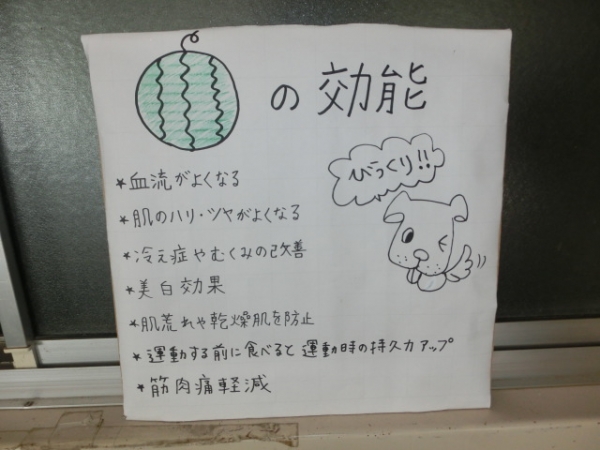 の効能
びっくり!!
★血流がよくなる
★肌のハリ・ツヤがよくなる
★冷え症やむくみの改善
★美白効果
★肌荒れや乾燥肌を防止
★運動する前に食べると運動時の持久力アップ
★筋肉痛軽減